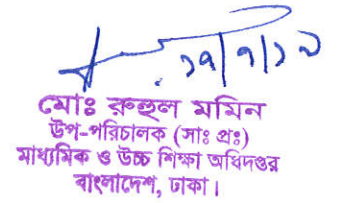 ১৭/৭/১৯
মোঃ রুহুল মমিন
উপ-পরিচালক (সাঃ প্রঃ)
মাধ্যমিক ও উচ্চ শিক্ষা অধিদপ্তর
বাংলাদেশ, ঢাকা।